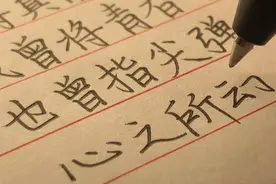 曾将青春
也曾指尖弹
心之所动